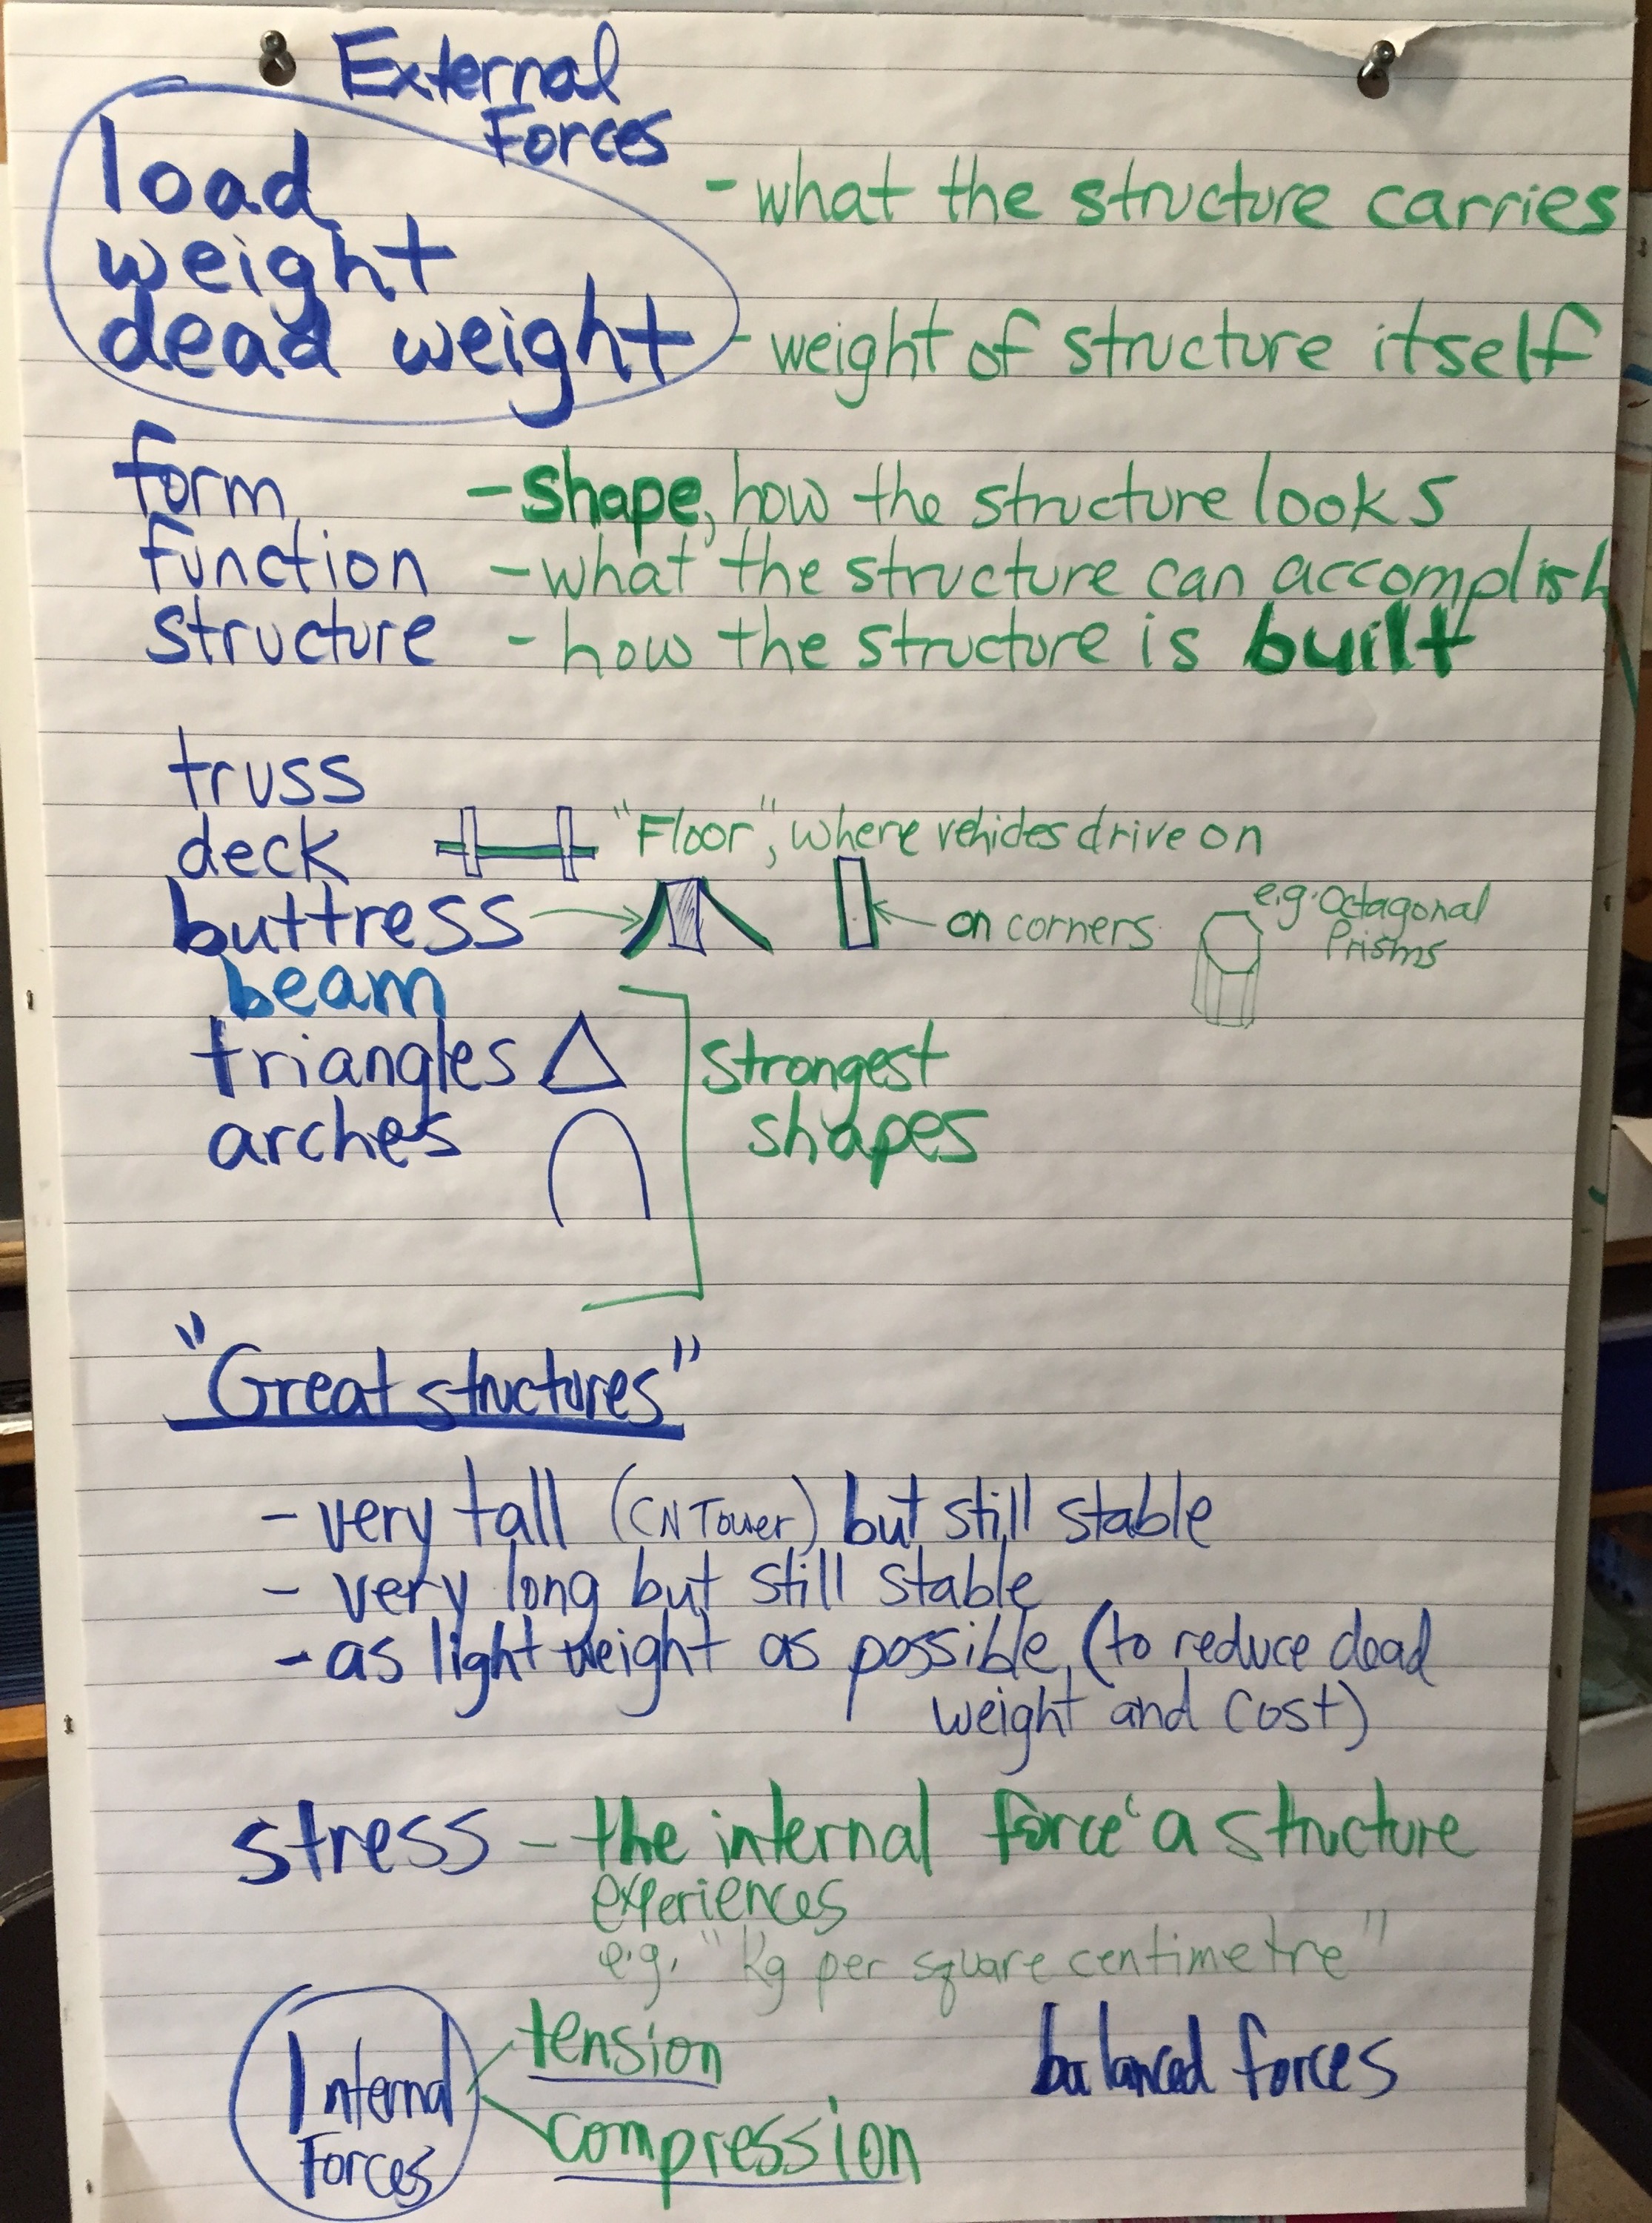 External
Forces
load - what the structure carries
weight
dead weight - weight of structure itself
form - shape, how the structure looks
function - what the structure can accomplish
structure - how the structure is built
truss
deck "Floor", where vehicles drive on
buttress on corners e.g. Octagonal
Prisms
beam
triangles strongest
arches shapes
"Great structures"
- very tall (CN Tower) but still stable
- very long but still stable
- as light weight as possible, (to reduce dead
weight and cost)
stress - the internal 'force' a structure
experiences
e.g. "Kg per square centimetre"
Internal tension balanced forces
Forces compression